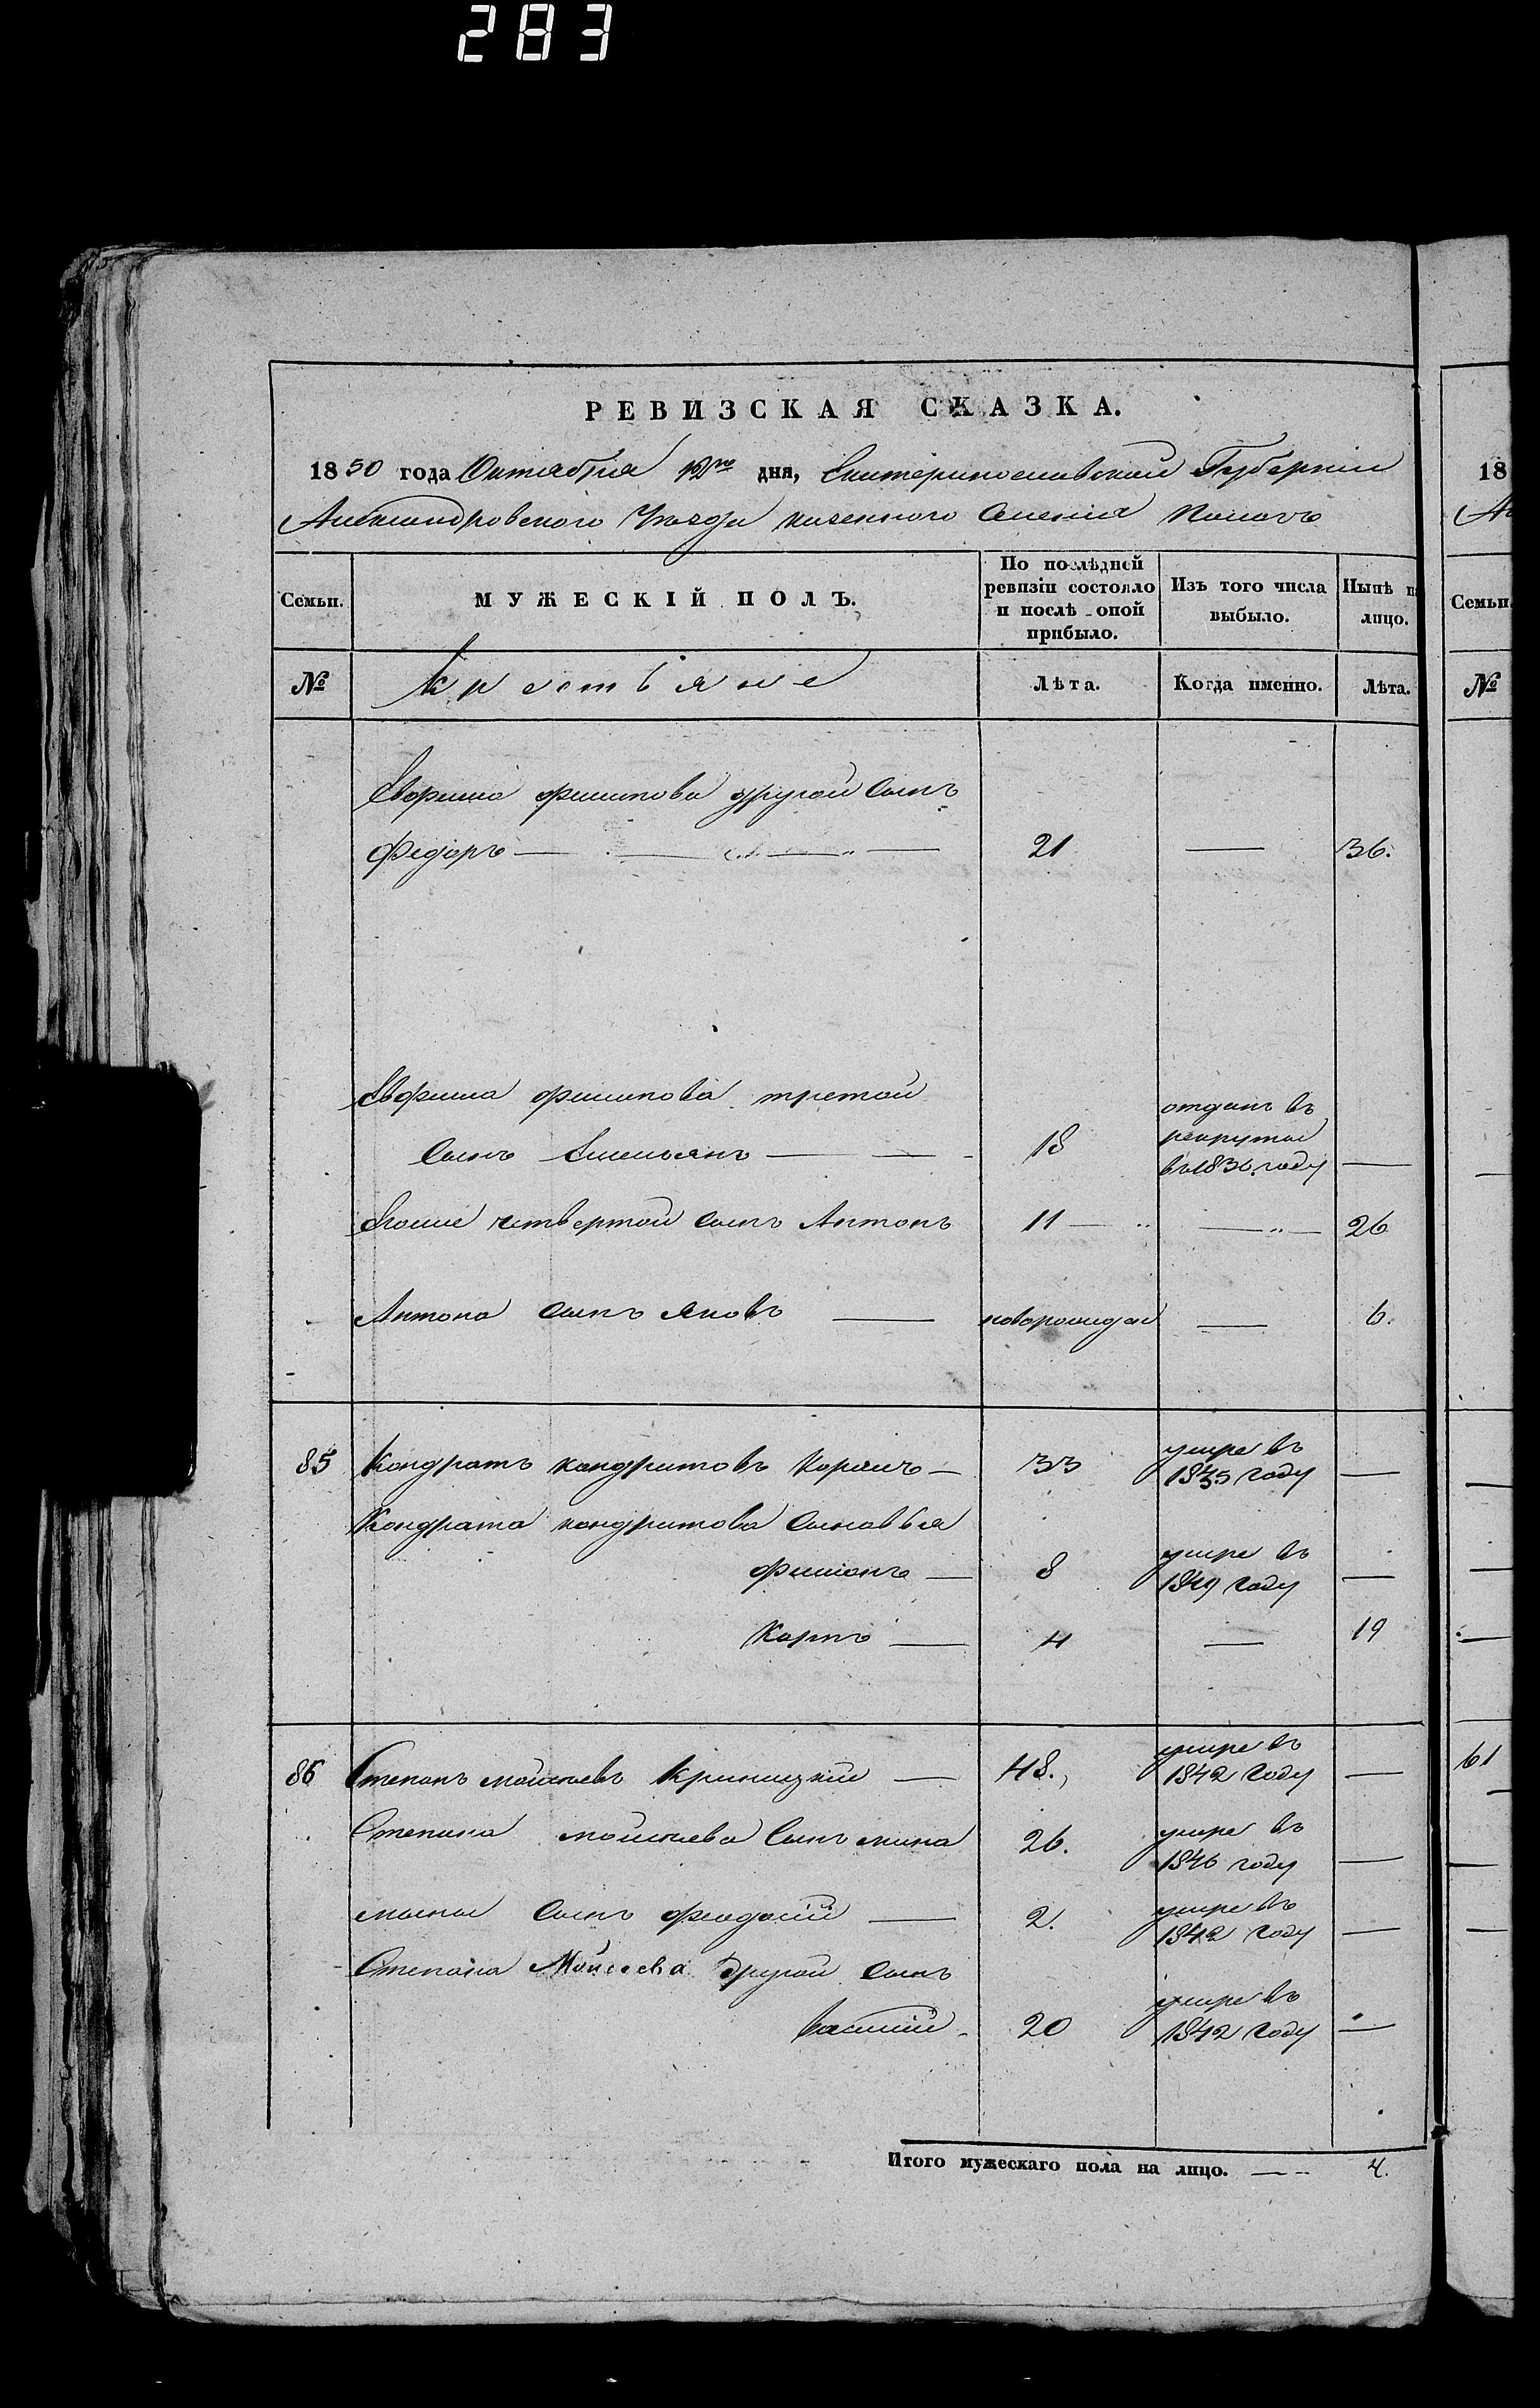 283
РЕВИЗСКАЯ СКАЗКА.
1850 года Октября 12го дня, Екатеринославской Губернии
Александровского Уезда казенного Селения
Семьи.
МУЖЕСКІЙ ПОЛЪ.
По послѣдней
ревизіи состояло
и послѣ оной
прибыло.
Изъ того числа
выбыло.
Нынѣ н
лицо.
№
крестьяне
Лѣта.
Когда именно.
Лѣта.
Ефрима филипова другой Сынъ
Федоръ — 21 — 36.
Ефрима филипова третой
Сынъ Емельянъ — 18 отданъ въ
рекруты
въ 1836 году —
Егоже четвертой сынъ Антонъ 11 — — 26
Антона сынъ яковъ — новорожден — 6.
85 Кондратъ кондратовъ — 33 умре въ
1835 году —
Кондрата кондратова Сыновья
филионъ — 8 умре въ
1849 году —
Карпъ — 4 — 19
86 Степанъ мойсеевъ Криницкий — 48. умре въ
1842 году —
Степана мойсеева Сынъ мина 26. умре въ
1846 году —
мины Сынъ феодосій — 2. умре въ
1842 году —
Степана Мойсеева другой Сынъ
василий 20 умре въ
1842 году —
Итого мужескаго пола на лицо. — 4.
18
Семьи
№
61